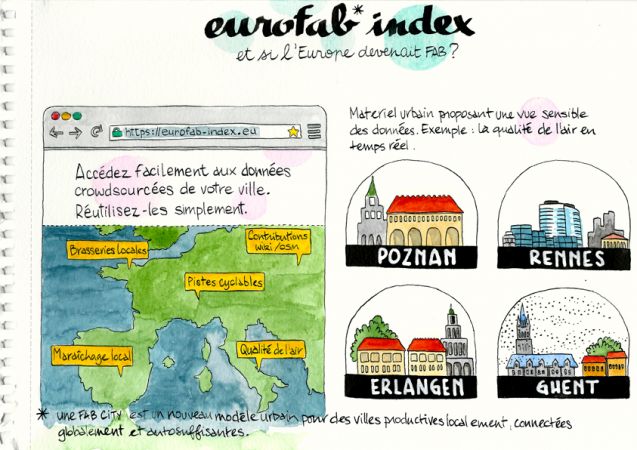 eurofab* index
et si l'Europe devenait FAB ?
https://eurofab-index.eu
Accédez facilement aux données
crowdsourcées de votre ville.
Réutilisez-les simplement.
Brasseries locales
Contributions
wiki/osm
Pistes cyclables
Maraîchage local
Qualité de l'air
Materiel urbain proposant une vue sensible
des données. Exemple : la qualité de l'air en
temps réel.
POZNAN
RENNES
ERLANGEN
GHENT
* une FAB CITY est un nouveau modèle urbain pour des villes productives localement, connectées
globalement et autosuffisantes.